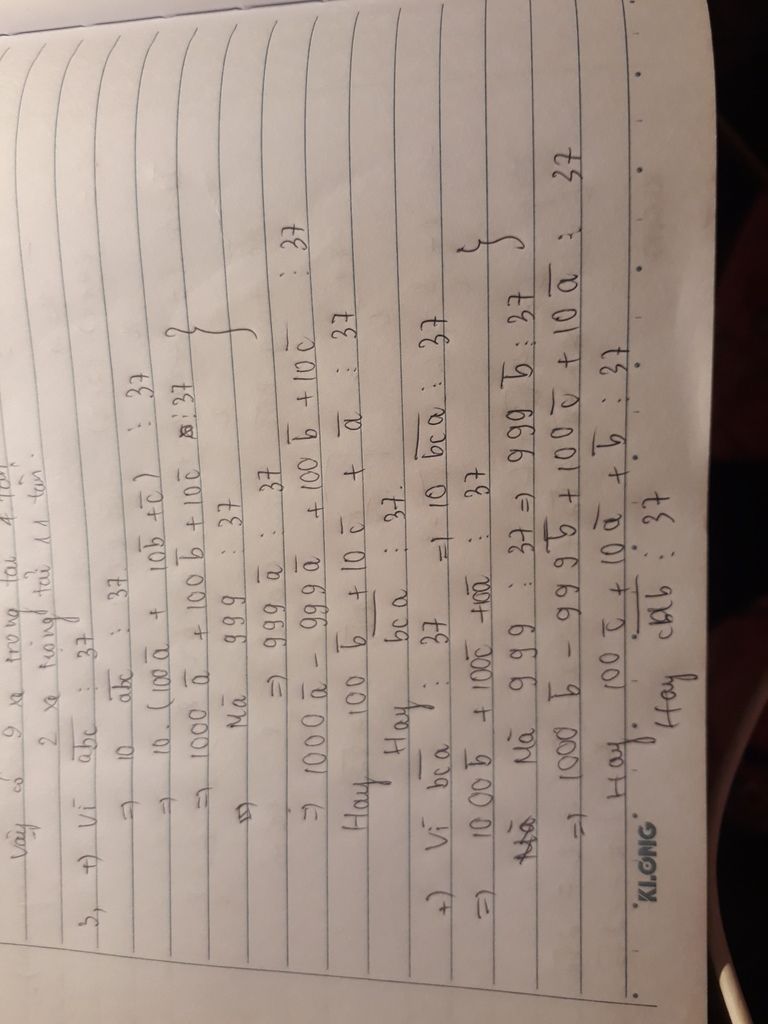 Vậy có 9 xe trọng tải 4 tấn
2 xe trọng tải 11 tấn.
3, +) Vì a̅b̅c̅ ⋮ 37
=> 10 a̅b̅c̅ ⋮ 37
=> 10.(100a̅ + 10b̅ + c̅) ⋮ 37
=> 1000 a̅ + 100 b̅ + 10c̅ ⋮ 37 }
Mà 999 ⋮ 37
=> 999 a̅ ⋮ 37
=> 1000 a̅ - 999 a̅ + 100 b̅ + 10 c̅ ⋮ 37
Hay 100 b̅ + 10 c̅ + a̅ ⋮ 37
Hay b̅c̅a̅ ⋮ 37.
+) Vì b̅c̅a̅ ⋮ 37 => 10 b̅c̅a̅ ⋮ 37
=> 1000b̅ + 100c̅ + 10a̅ ⋮ 37 }
Mà 999 ⋮ 37 => 999 b̅ ⋮ 37
=> 1000 b̅ - 999 b̅ + 100 c̅ + 10 a̅ ⋮ 37
Hay 100 c̅ + 10 a̅ + b̅ ⋮ 37
Hay c̅a̅b̅ ⋮ 37
KLONG